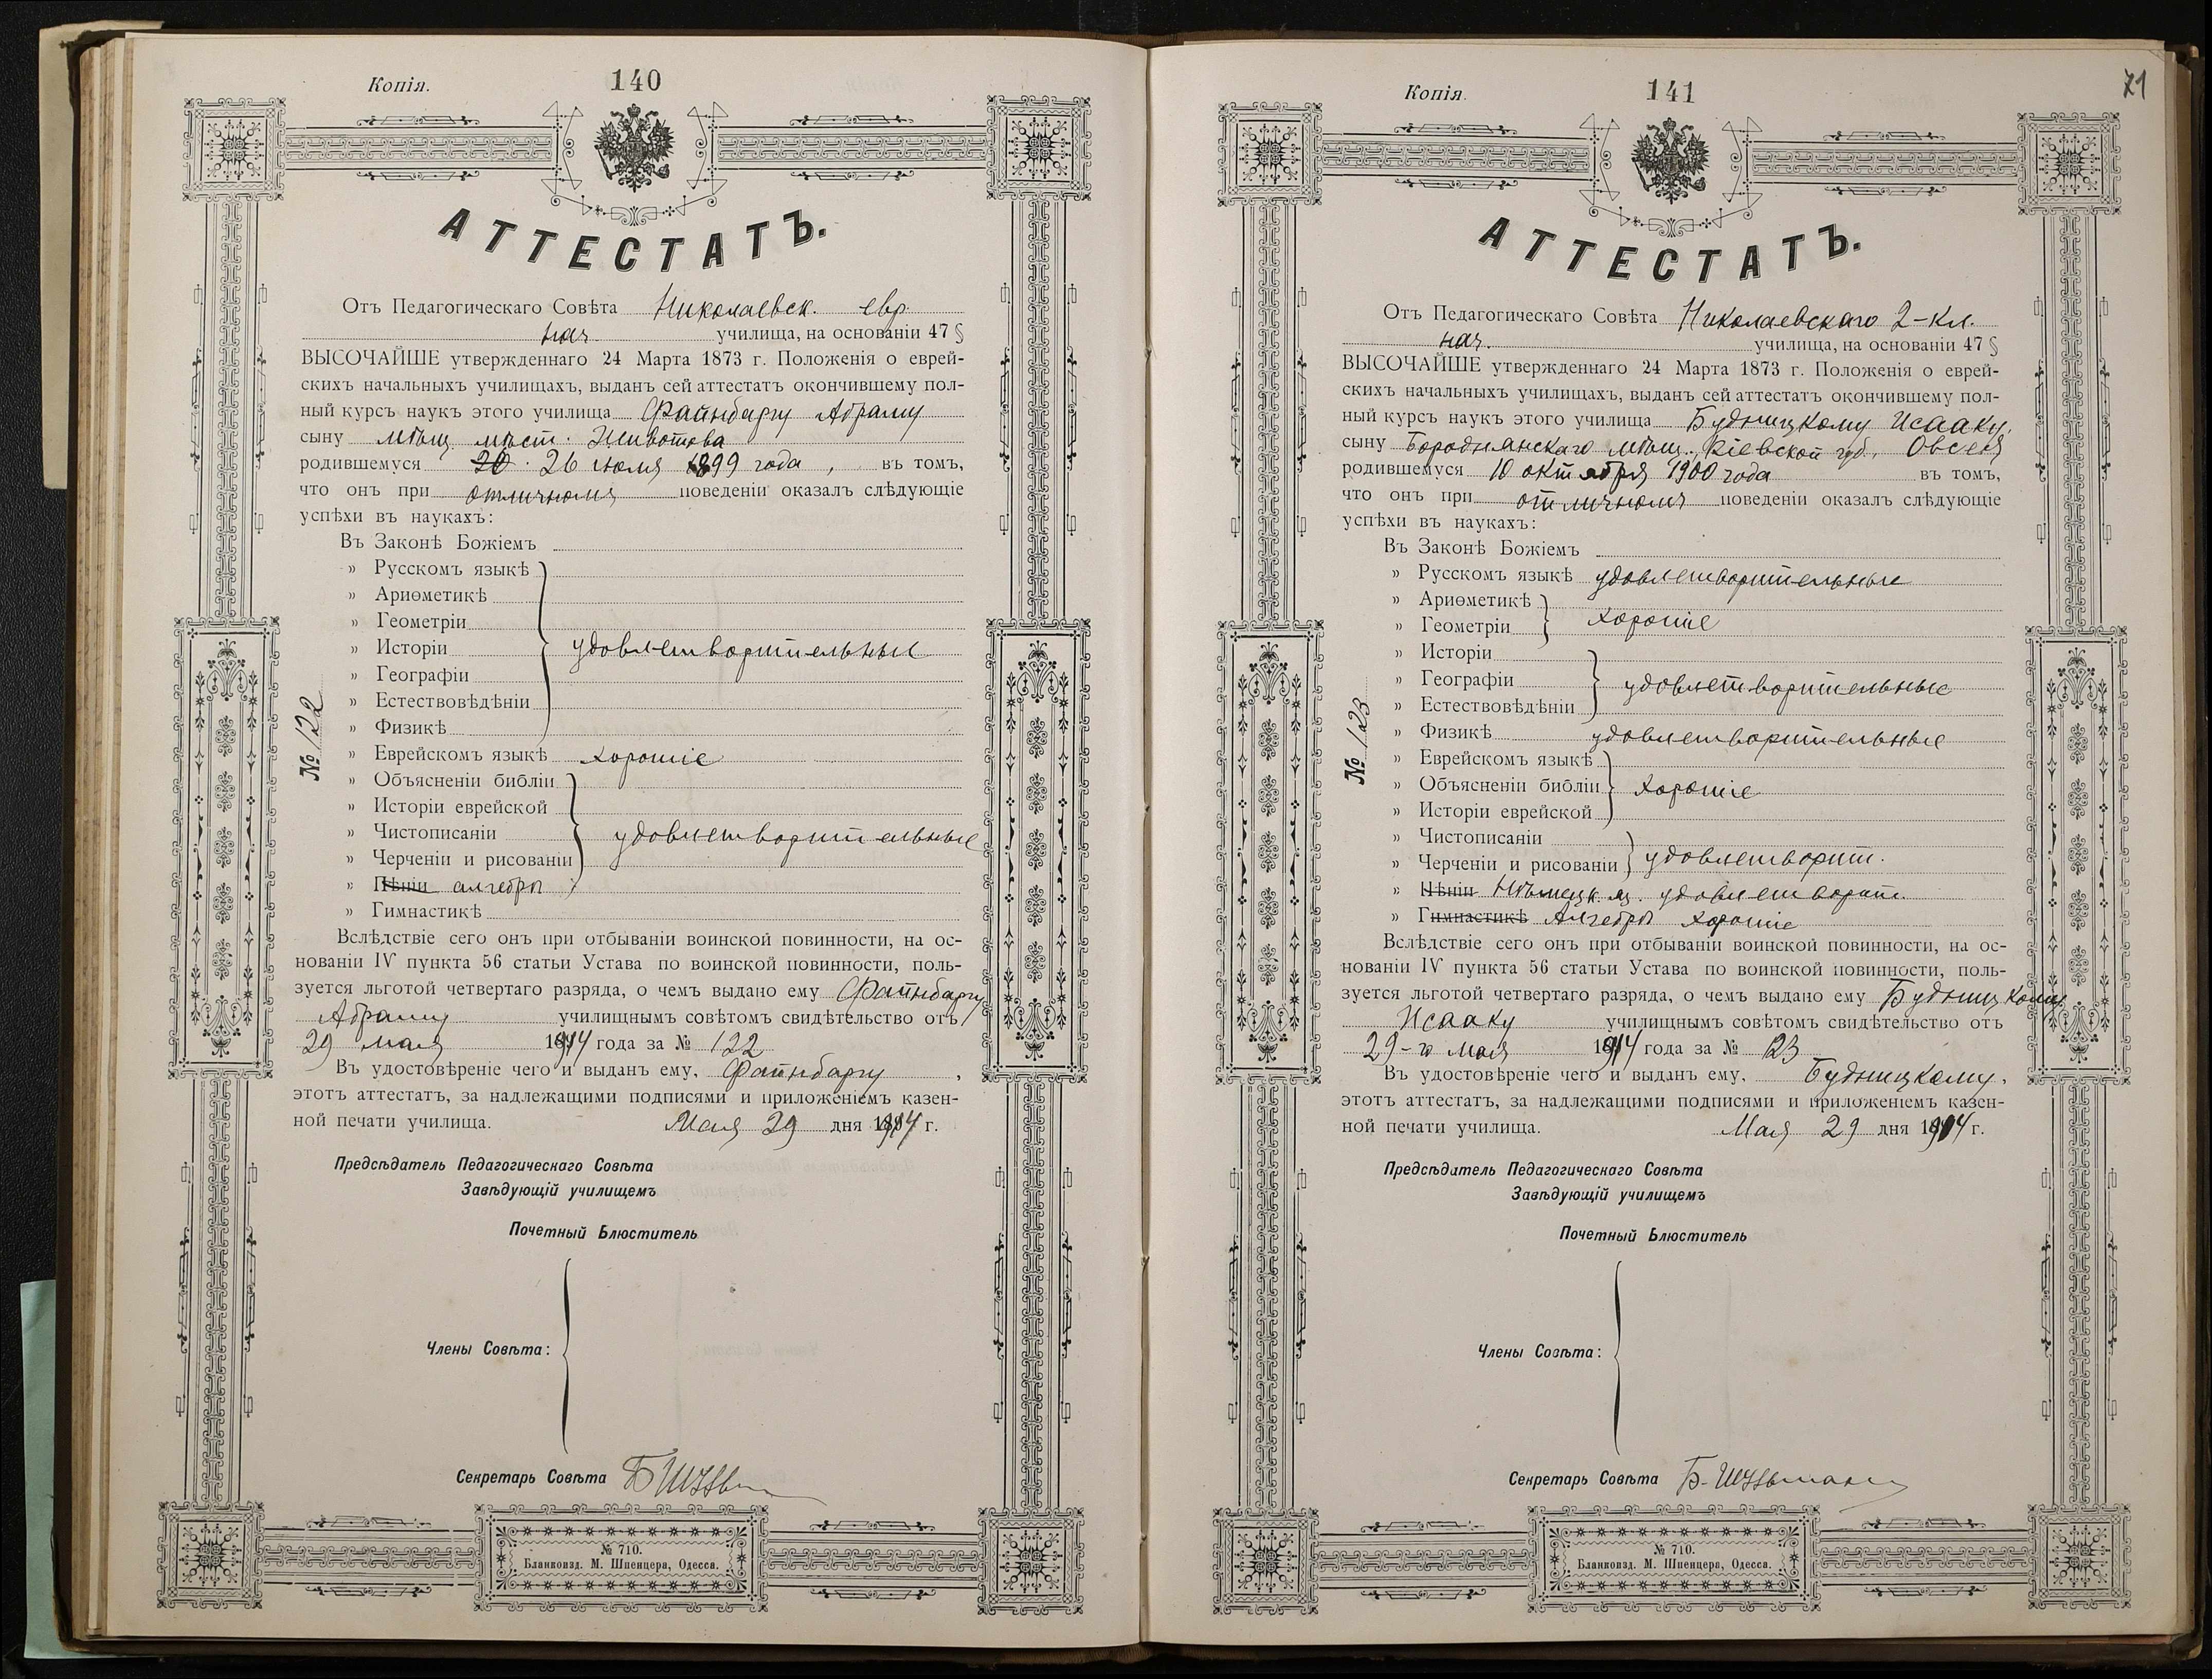 Копія.
140
АТТЕСТАТЪ.
Отъ Педагогическаго Совѣта Николаевск. евр.
нач. училища, на основаніи 47 §
ВЫСОЧАЙШЕ утвержденнаго 24 Марта 1873 г. Положенія о еврей-
скихъ начальныхъ училищахъ, выданъ сей аттестатъ окончившему пол-
ный курсъ наукъ этого училища Файнбаргу Абраму
сыну мѣщ. мѣст. Животова
родившемуся 26 июля 1899 года, въ томъ,
что онъ при отличномъ поведеніи оказалъ слѣдующіе
успѣхи въ наукахъ:
Въ Законѣ Божіемъ
» Русскомъ языкѣ
» Ариѳметикѣ
» Геометріи
» Исторіи удовлетворительные
» Географіи
» Естествовѣдѣніи
» Физикѣ
» Еврейскомъ языкѣ хорошіе
» Объясненіи библіи
» Исторіи еврейской
» Чистописаніи удовлетворительные
» Черченіи и рисованіи
» Пѣніи алгебры
» Гимнастикѣ
№ 122
Вслѣдствіе сего онъ при отбываніи воинской повинности, на ос-
нованіи IV пункта 56 статьи Устава по воинской повинности, поль-
зуется льготой четвертаго разряда, о чемъ выдано ему Файнбаргу
Абраму училищнымъ совѣтомъ свидѣтельство отъ
29 мая 1914 года за № 122
Въ удостовѣреніе чего и выданъ ему, Файнбаргу,
этотъ аттестатъ, за надлежащими подписями и приложеніемъ казен-
ной печати училища. Мая 29 дня 1914 г.
Предсѣдатель Педагогическаго Совѣта
Завѣдующій училищемъ
Почетный Блюститель
Члены Совѣта:
Секретарь Совѣта
№ 710.
Бланкоизд. М. Шпенцера, Одесса.
71
Копія.
141
АТТЕСТАТЪ.
Отъ Педагогическаго Совѣта Николаевскаго 2-кл.
нач. училища, на основаніи 47 §
ВЫСОЧАЙШЕ утвержденнаго 24 Марта 1873 г. Положенія о еврей-
скихъ начальныхъ училищахъ, выданъ сей аттестатъ окончившему пол-
ный курсъ наукъ этого училища Будницкому Исааку,
сыну Бороднянскаго мѣщ. Кіевской губ. Овсея
родившемуся 10 октября 1900 года въ томъ,
что онъ при отличномъ поведеніи оказалъ слѣдующіе
успѣхи въ наукахъ:
Въ Законѣ Божіемъ
» Русскомъ языкѣ удовлетворительные
» Ариѳметикѣ
» Геометріи хорошіе
» Исторіи
» Географіи удовлетворительные
» Естествовѣдѣніи
» Физикѣ удовлетворительные
» Еврейскомъ языкѣ
» Объясненіи библіи хорошіе
» Исторіи еврейской
» Чистописаніи
» Черченіи и рисованіи удовлетворит.
» Пѣніи Нѣмецк. яз. удовлетворит.
» Гимнастикѣ Алгебры хорошіе
№ 123
Вслѣдствіе сего онъ при отбываніи воинской повинности, на ос-
нованіи IV пункта 56 статьи Устава по воинской повинности, поль-
зуется льготой четвертаго разряда, о чемъ выдано ему Будницкому
Исааку училищнымъ совѣтомъ свидѣтельство отъ
29-го мая 1914 года за № 123
Въ удостовѣреніе чего и выданъ ему, Будницкому,
этотъ аттестатъ, за надлежащими подписями и приложеніемъ казен-
ной печати училища. Мая 29 дня 1914 г.
Предсѣдатель Педагогическаго Совѣта
Завѣдующій училищемъ
Почетный Блюститель
Члены Совѣта:
Секретарь Совѣта Б. Шульман
№ 710.
Бланкоизд. М. Шпенцера, Одесса.